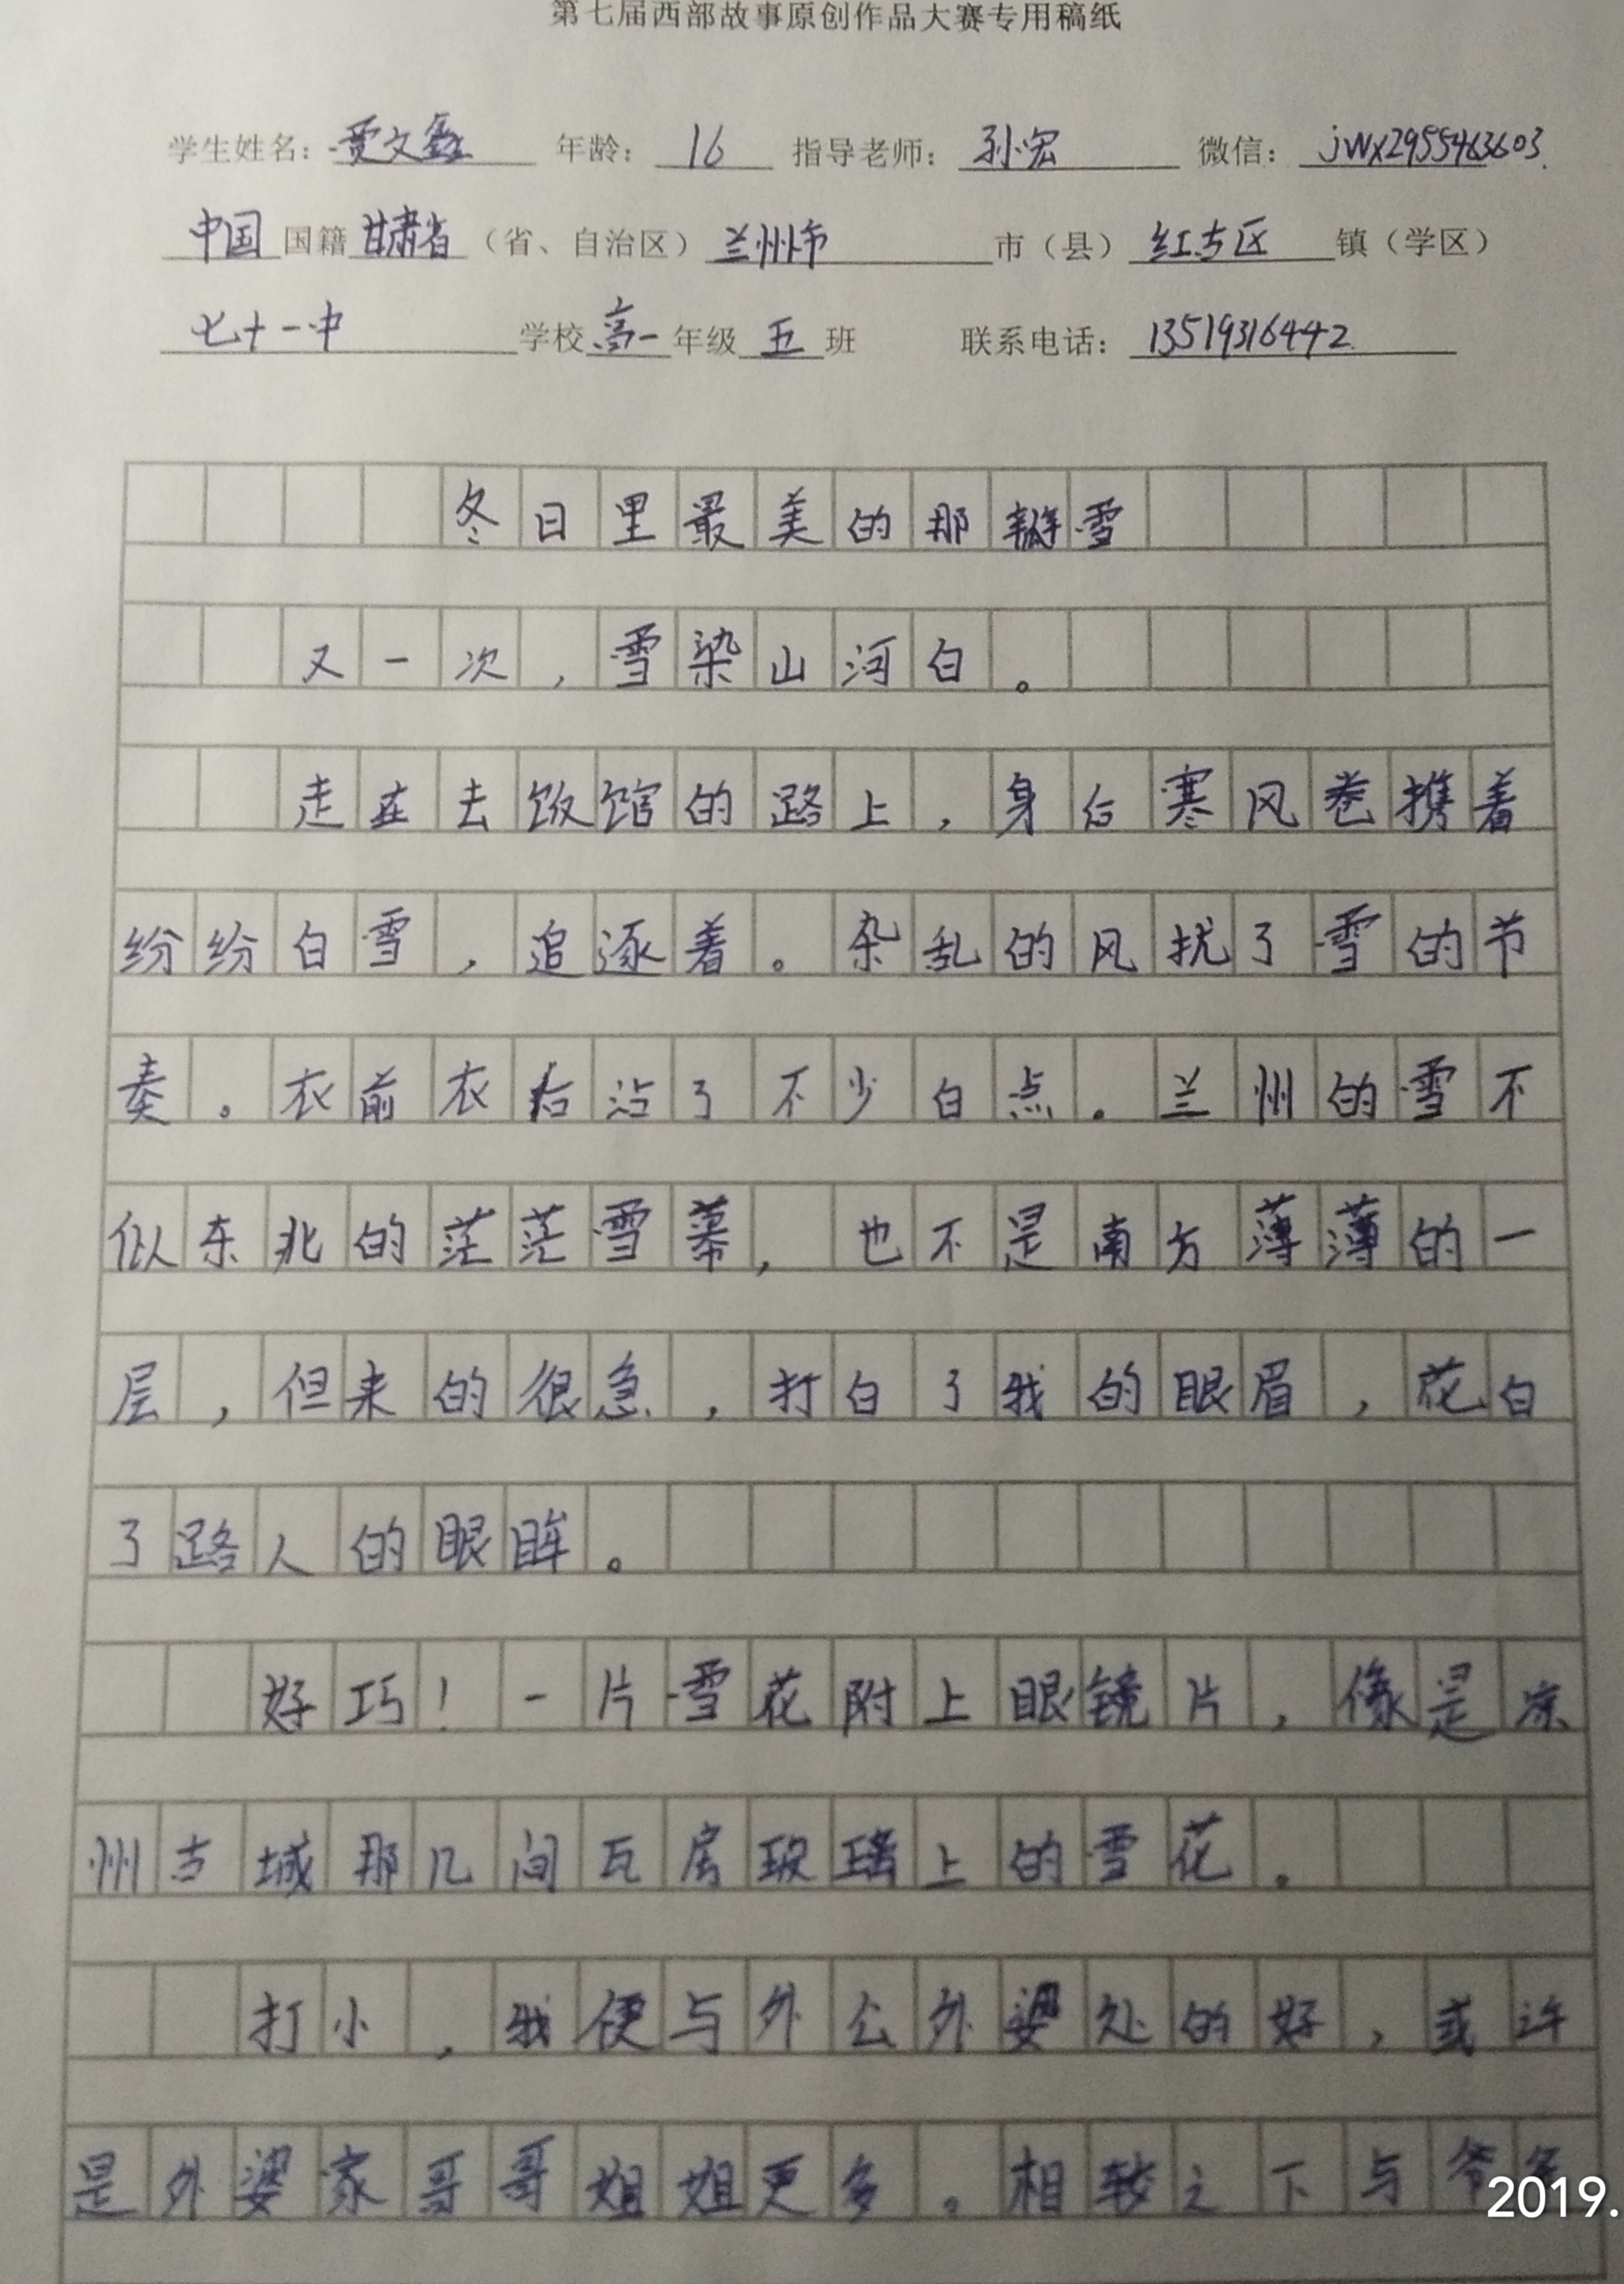 第七届西部故事原创作品大赛专用稿纸
学生姓名：贾文鑫 年龄：16 指导老师：孙宏 微信：jwx2955463603
中国国籍甘肃省（省、自治区）兰州市市（县）红古区镇（学区）
七十一中学校高一年级五班 联系电话：13519316442
冬日里最美的那瓣雪
又一次，雪染山河白。
走在去饭馆的路上，身后寒风卷携着
纷纷白雪，追逐着。杂乱的风扰了雪的节
奏。衣前衣后沾了不少白点。兰州的雪不
似东北的茫茫雪幕，也不是南方薄薄的一
层，但来的很急，打白了我的眼眉，花白
了路人的眼眸。
好巧！一片雪花附上眼镜片，像是凉
州古城那几间瓦房玻璃上的雪花。
打小，我便与外公外婆处的好，或许
是外婆家哥哥姐姐更多。相较之下与爷爷
2019.